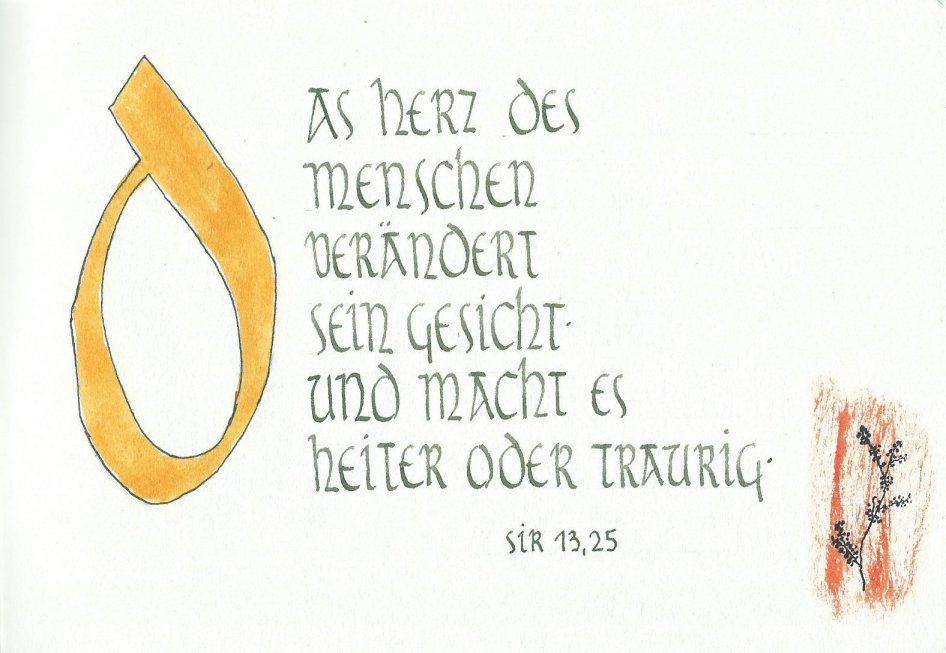 Das Herz des
Menschen
verändert
sein Gesicht·
und macht es
heiter oder traurig·
Sir 13,25